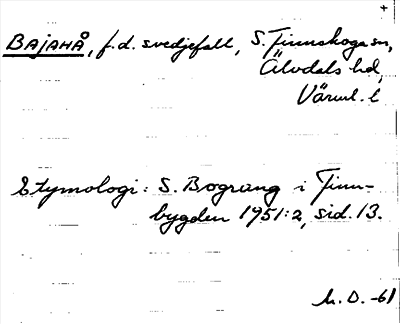 +
BAJAHÅ, f.d. svedjefall, S. Finnskoga sn,
Älvdals hd,
Värml. l
Etymologi: S. Bograng i Finn-
bygden 1951:2, sid. 13.
h. D. -61